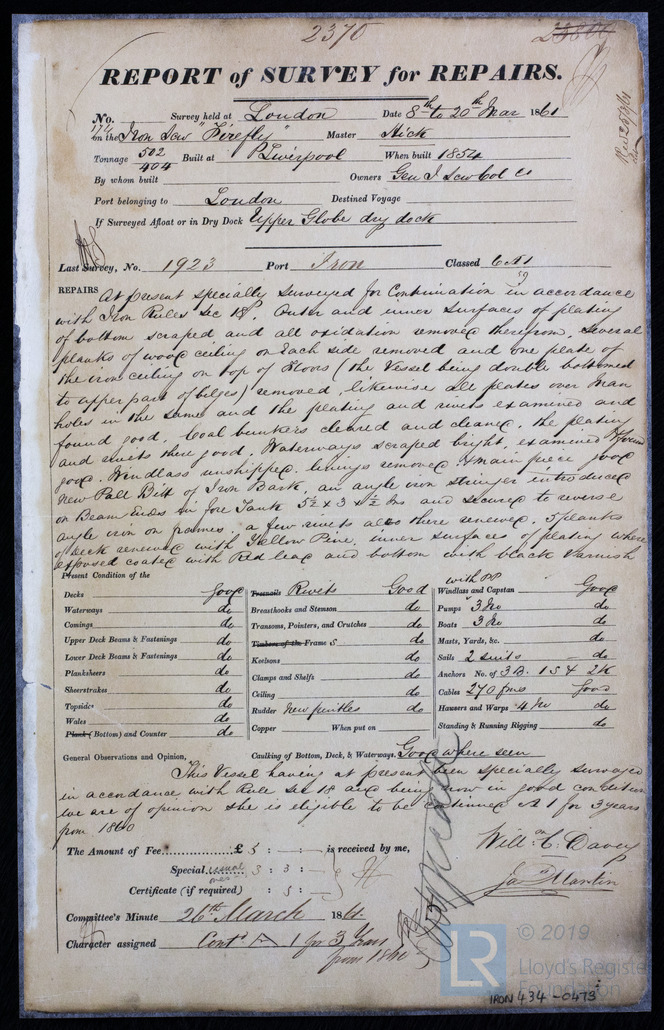 2370
REPORT of SURVEY for REPAIRS.
No. Survey held at London Date 8th to 20th Mar 1861
174 on the Iron Scw "Firefly" Master Hick
Tonnage 502/404 Built at Liverpool When built 1854
By whom built Owners Genl I Scw Col Co
Port belonging to London Destined Voyage
If Surveyed Afloat or in Dry Dock Upper Globe dry dock
Last Survey, No. 1923 Port Iron Classed 6 A1
REPAIRS At present specially surveyed for Continuation in accordance
with Iron Rules Sec 18. Outer and inner surfaces of plating
of bottom scraped and all oxidation removed therefrom, Several
planks of wood ceiling on Each side removed and one plate of
the iron ceiling on top of floors (the Vessel being double bottomed
to upper part of bilges) removed, likewise all plates over Man
holes in the same and the plating and rivets examined and
found good, Coal bunkers cleared and cleaned, the plating
and rivets there good, Waterways scraped bright, examined & found
good. Windlass unshipped linings removed & main piece good
New Pall Bitt of Iron Bark, an angle iron stringer introduced
on Beam Ends in fore Tank 5½ x 3 x ½ Ins and secured to reverse
angle iron on frames, a few rivets also there renewed. 5 planks
of deck renewed with Yellow Pine, inner surfaces of plating where
exposed coated with Red lead and bottom with black Varnish
Present Condition of the
Decks good
Waterways do
Comings do
Upper Deck Beams & Fastenings do
Lower Deck Beams & Fastenings do
Planksheers do
Sheerstrakes do
Topsides do
Wales do
Plank (Bottom) and Counter do
Treenails Rivets Good
Breasthooks and Stemson do
Transoms, Pointers, and Crutches do
Timbers of the Frames do
Keelsons do
Clamps and Shelfs do
Ceiling do
Rudder New pintles do
Copper When put on
with PP
Windlass and Capstan Good
Pumps 3 No do
Boats 3 No do
Masts, Yards, &c. do
Sails 2 suits do
Anchors No. of 3 B. 1 S & 2 K
Cables 270 fms Good
Hawsers and Warps 4 No do
Standing & Running Rigging do
General Observations and Opinion, Caulking of Bottom, Deck, & Waterways. Good where seen
This Vessel having at present been specially surveyed
in accordance with Rule Sec 18 and being now in good condition
we are of opinion she is eligible to be continued A 1 for 3 years
from 1860
The Amount of Fee £ 5 : - : - is received by me,
Special 3 : 3 : -
Certificate (if required) : 5 : -
Willm C. Davey
Jas Martin
Committee's Minute 26th March 1861.
Character assigned Contd A 1 for 3 Years
from 1860
© 2019
LR
Lloyd's Register
Foundation
IRON 434-0473